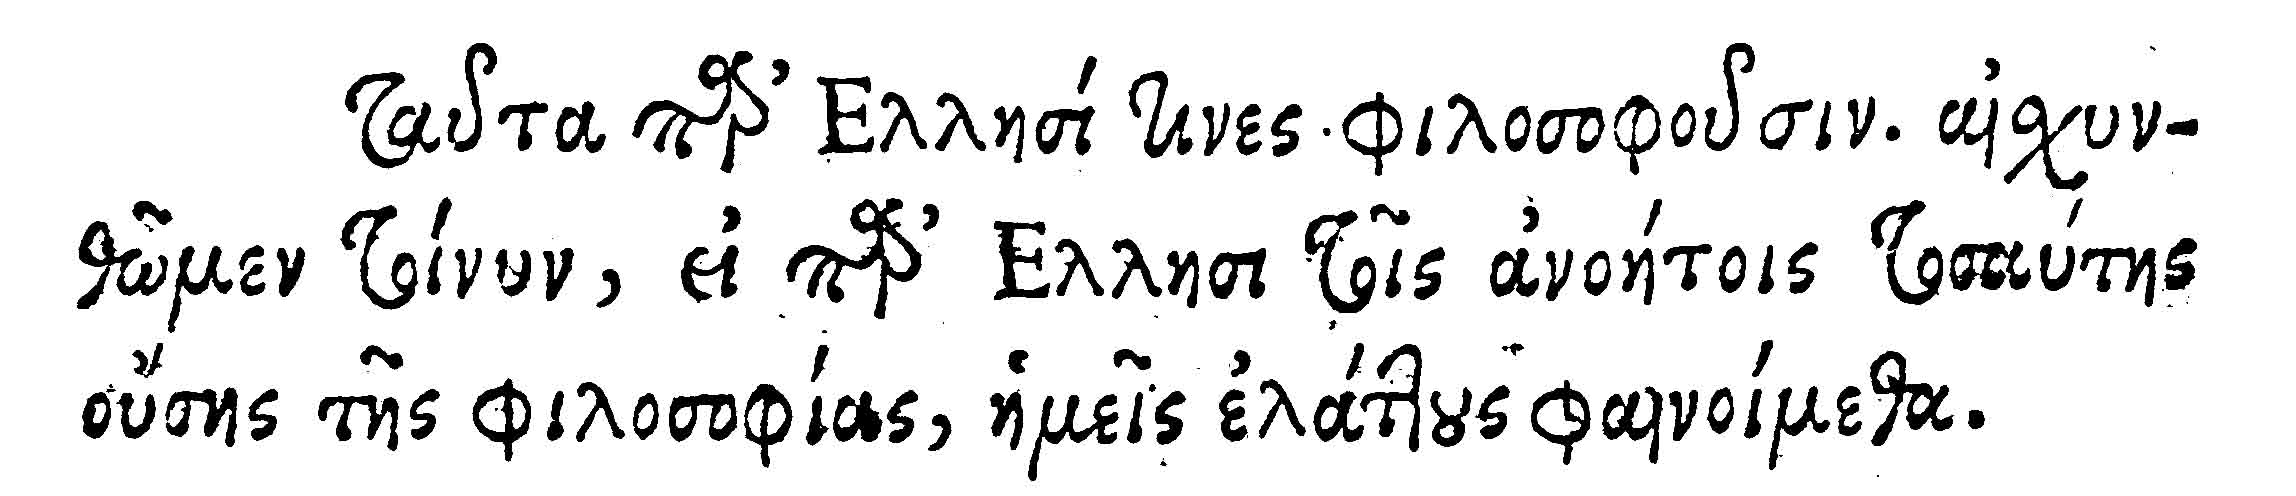 ταῦτα παρ᾽ Ἕλλησί τινες φιλοσοφοῦσιν. αἰσχυν-
θῶμεν τοίνυν, εἰ παρ᾽ Ἕλλησι τοῖς ἀνοήτοις τοσαύτης
οὔσης τῆς φιλοσοφίας, ἡμεῖς ἐλάττους φαινοίμεθα.